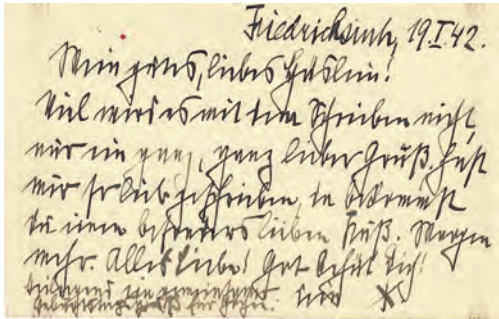 Friedrichsruh, 19.I.42.
Mein gutes, liebes Häslein!
Viel wird es mit dem Schreiben nicht,
nur ein ganz, ganz lieber Gruß. Hast
mir so lieb geschrieben, da bekommst
du einen besonders lieben Kuß. Morgen
mehr. Alles Liebe! Gott behüt Dich!
beiliegend ein gemeinsamer
Geburtstagsgruß für